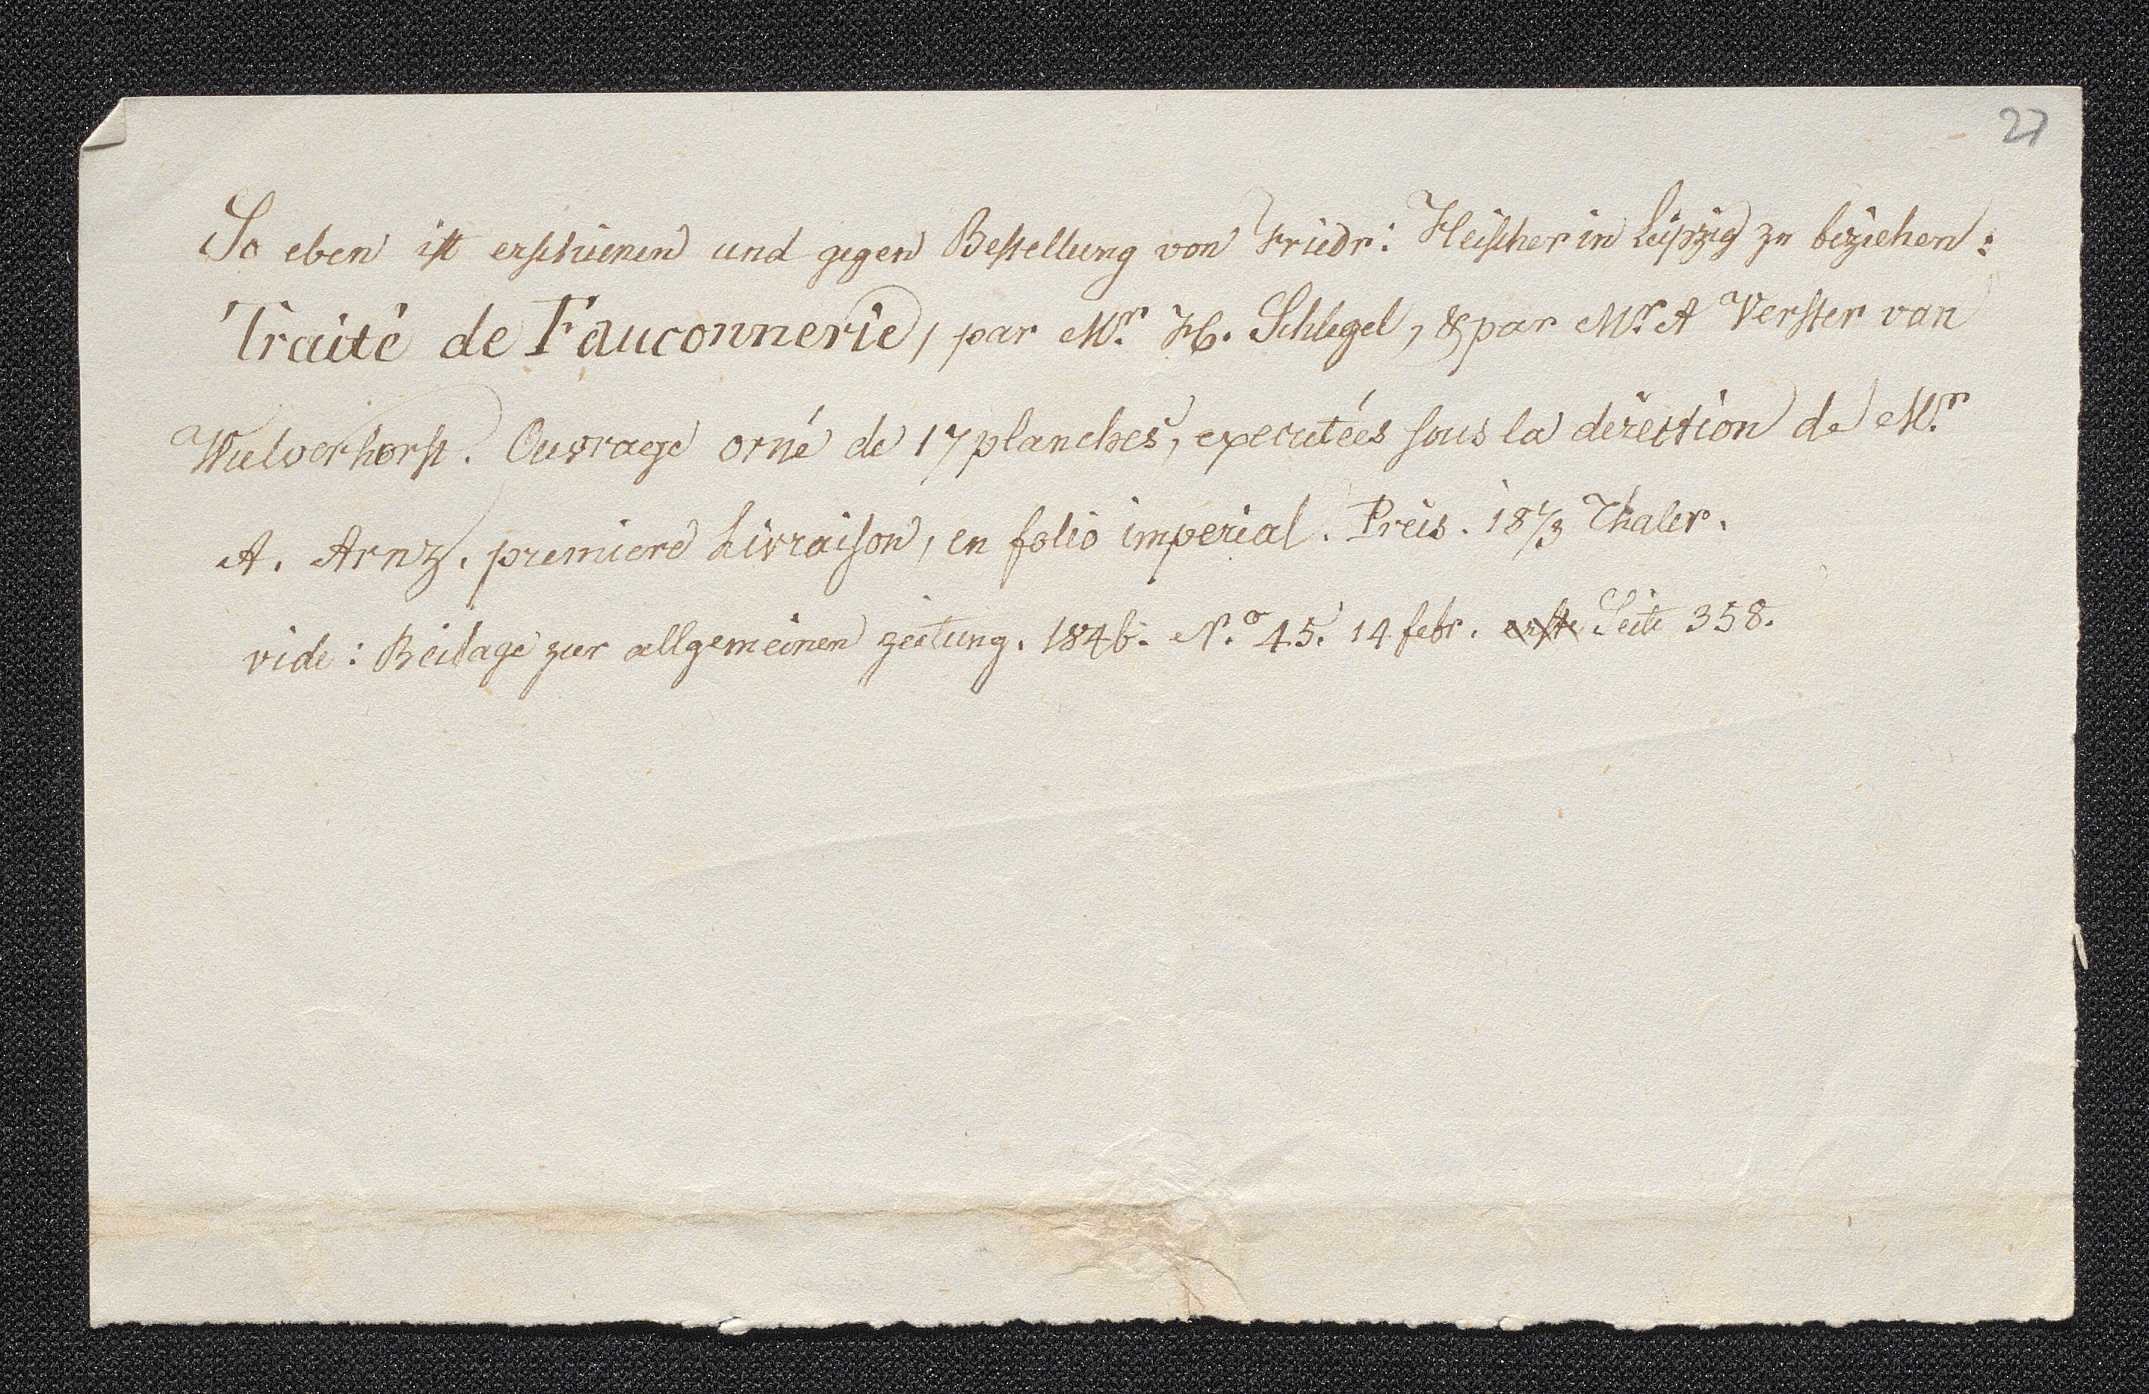 27
So eben ist erschienen und gegen Bestellung von Friedr: Fleischer in Leipzig zu beziehen:
Traité de Fauconnerie, par Mr. H. Schlegel, & par Mr. A Verster van
Wulverhorst. Ouvrage orné de 17 planches, executées sous la direction de Mr.
A. Arnz. premiere Livraison, en folio imperial. Preis. Thaler.
vide: Beilage zur allgemeinen zeitung. 1846. No. 45. 14 febr. erste Seite 358.